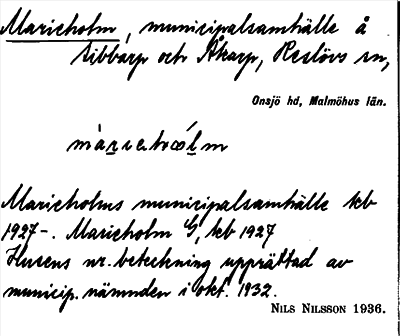 Marieholm, municipalsamhälle å
Tibbarp och Åkarp, Reslövs sn,
Onsjö hd, Malmöhus län.
Marieholms municipalsamhälle kb
1927-. Marieholm G, kb 1927
Husens nr. beteckning upprättad av
municip. nämnden i okt. 1932.
NILS NILSSON 1936.